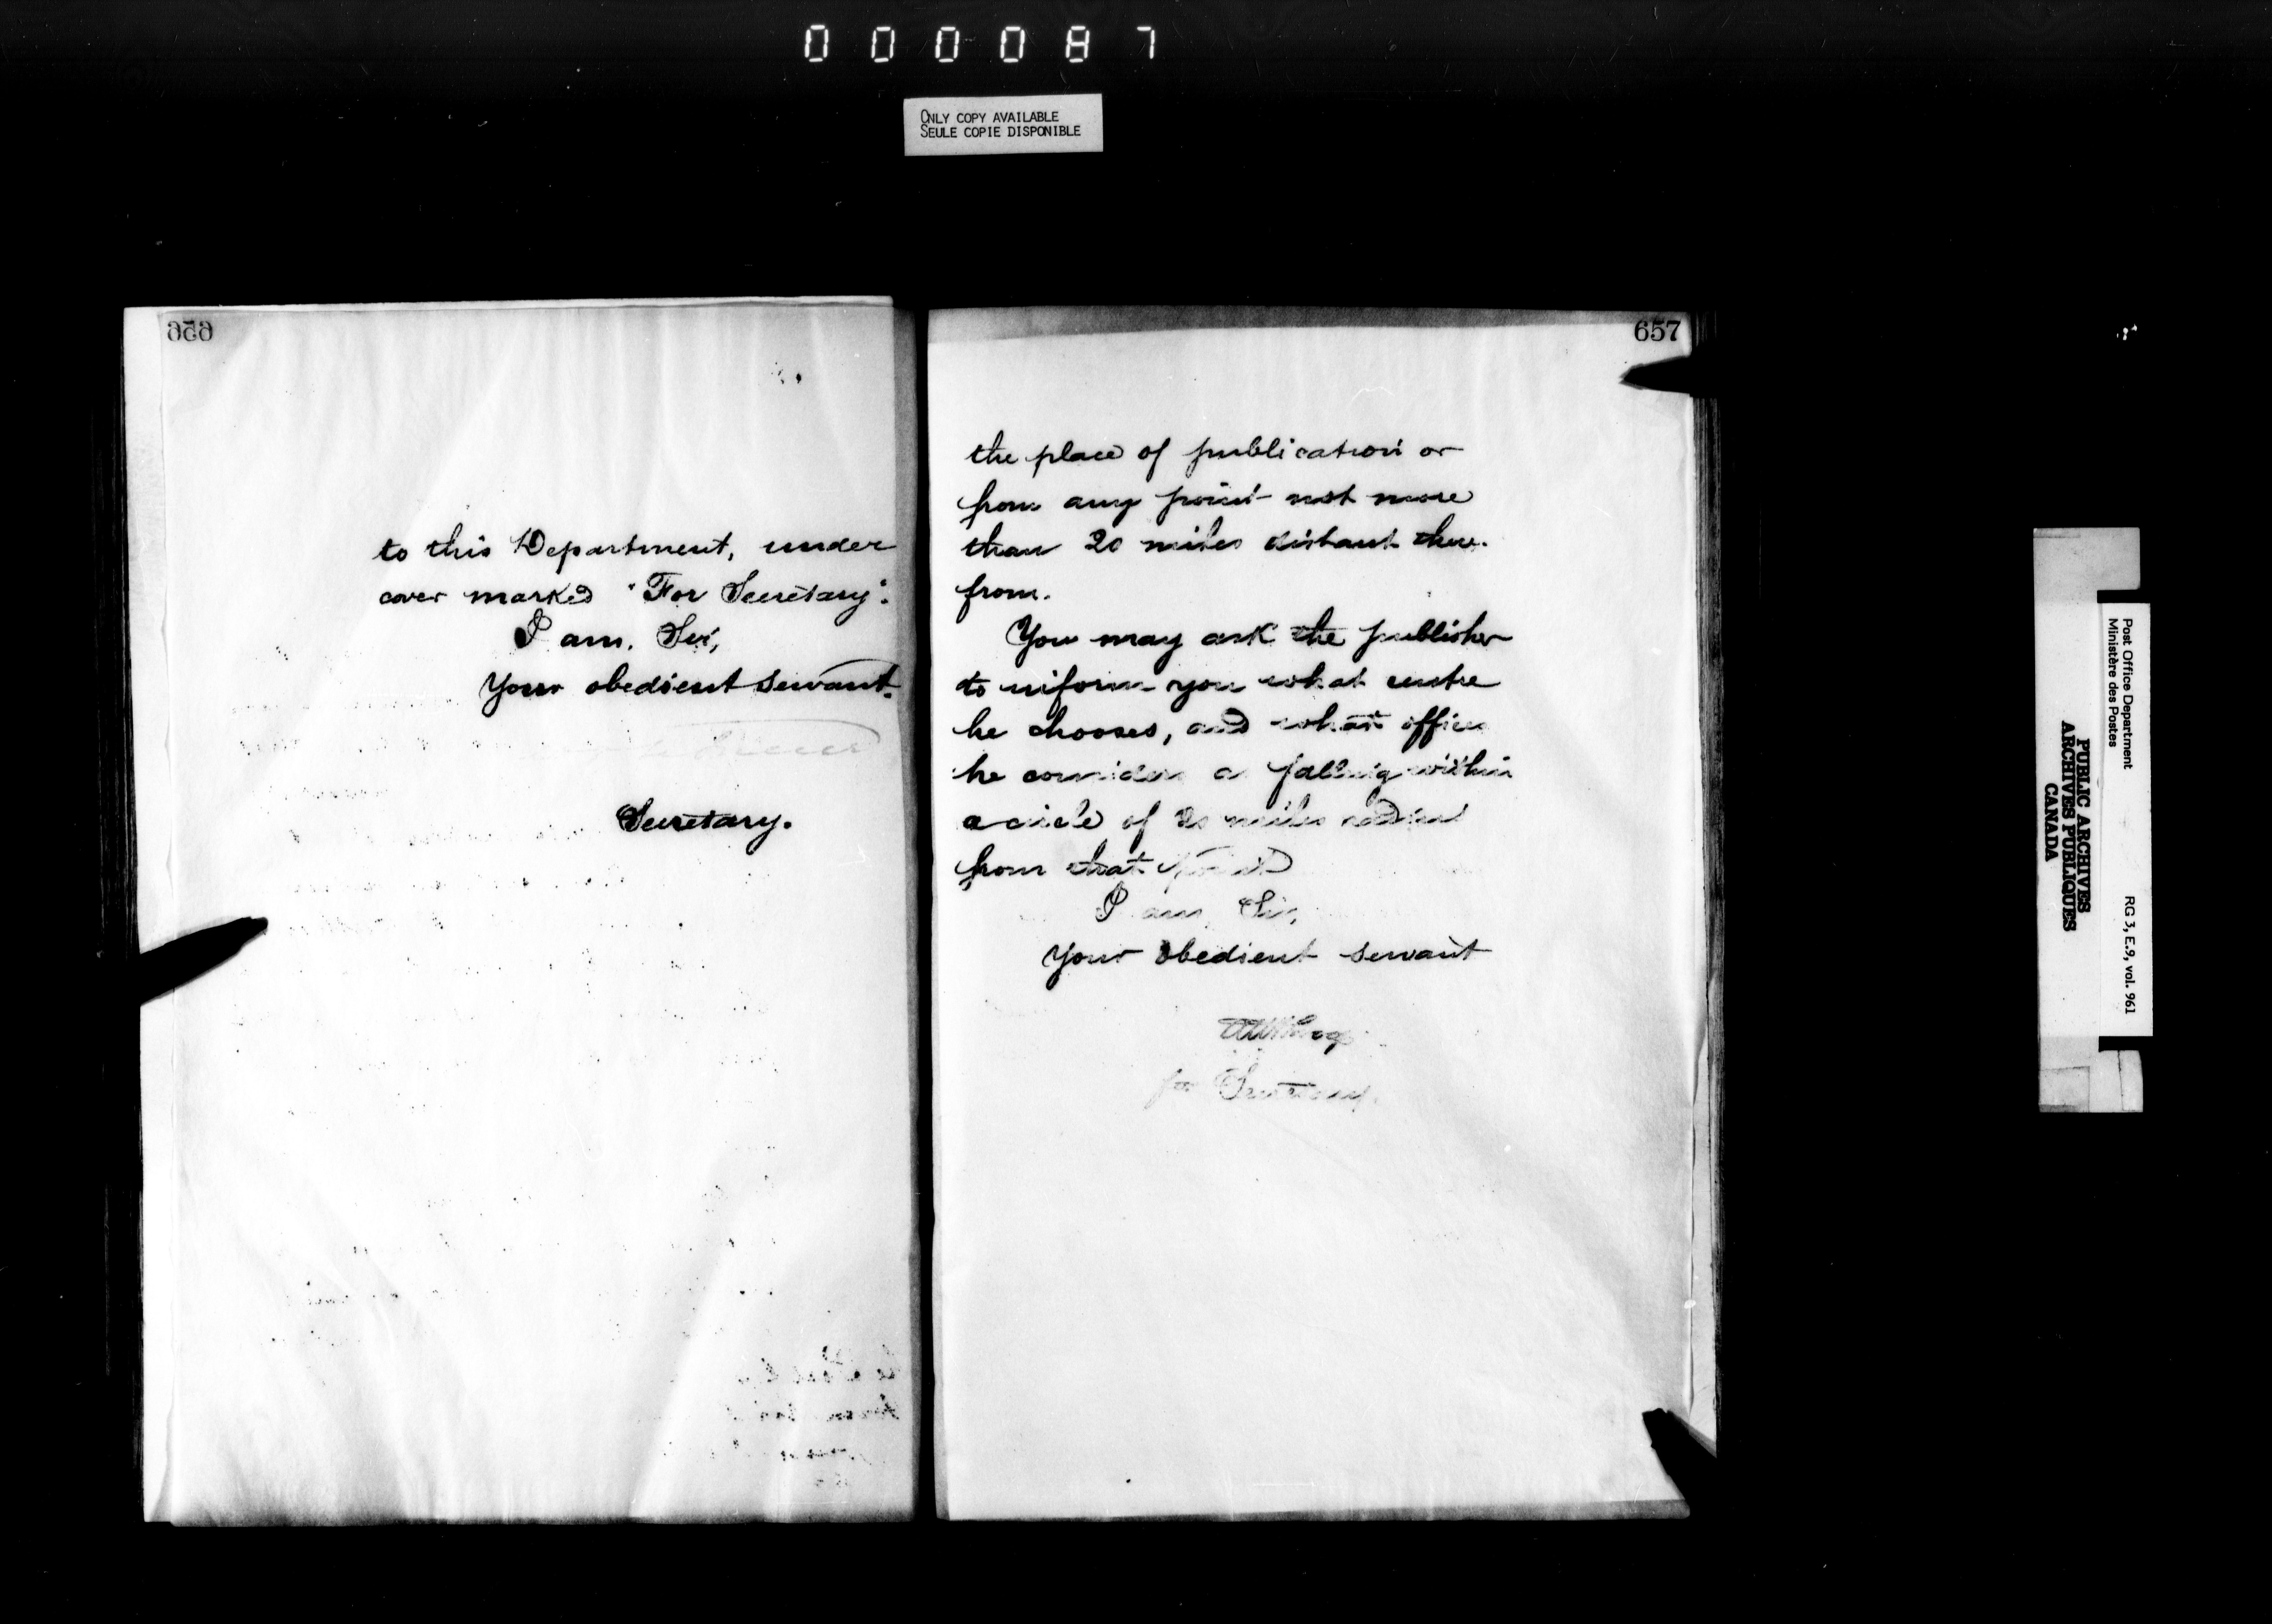 000087
ONLY COPY AVAILABLE
SEULE COPIE DISPONIBLE
656
to this Department, under
cover marked "For Secretary".
I am, Sir,
Your obedient servant.
Secretary.
657
the place of publication or
from any point not more
than 20 miles distant there-
from.
You may ask the publisher
to inform you what centre
he chooses, and what offices
he considers as falling within
a circle of 20 miles radius
from that point
I am, Sir,
Your obedient servant
for Secretary.
Post Office Department
Ministère des Postes
RG 3, E.9, vol. 961
PUBLIC ARCHIVES
ARCHIVES PUBLIQUES
CANADA